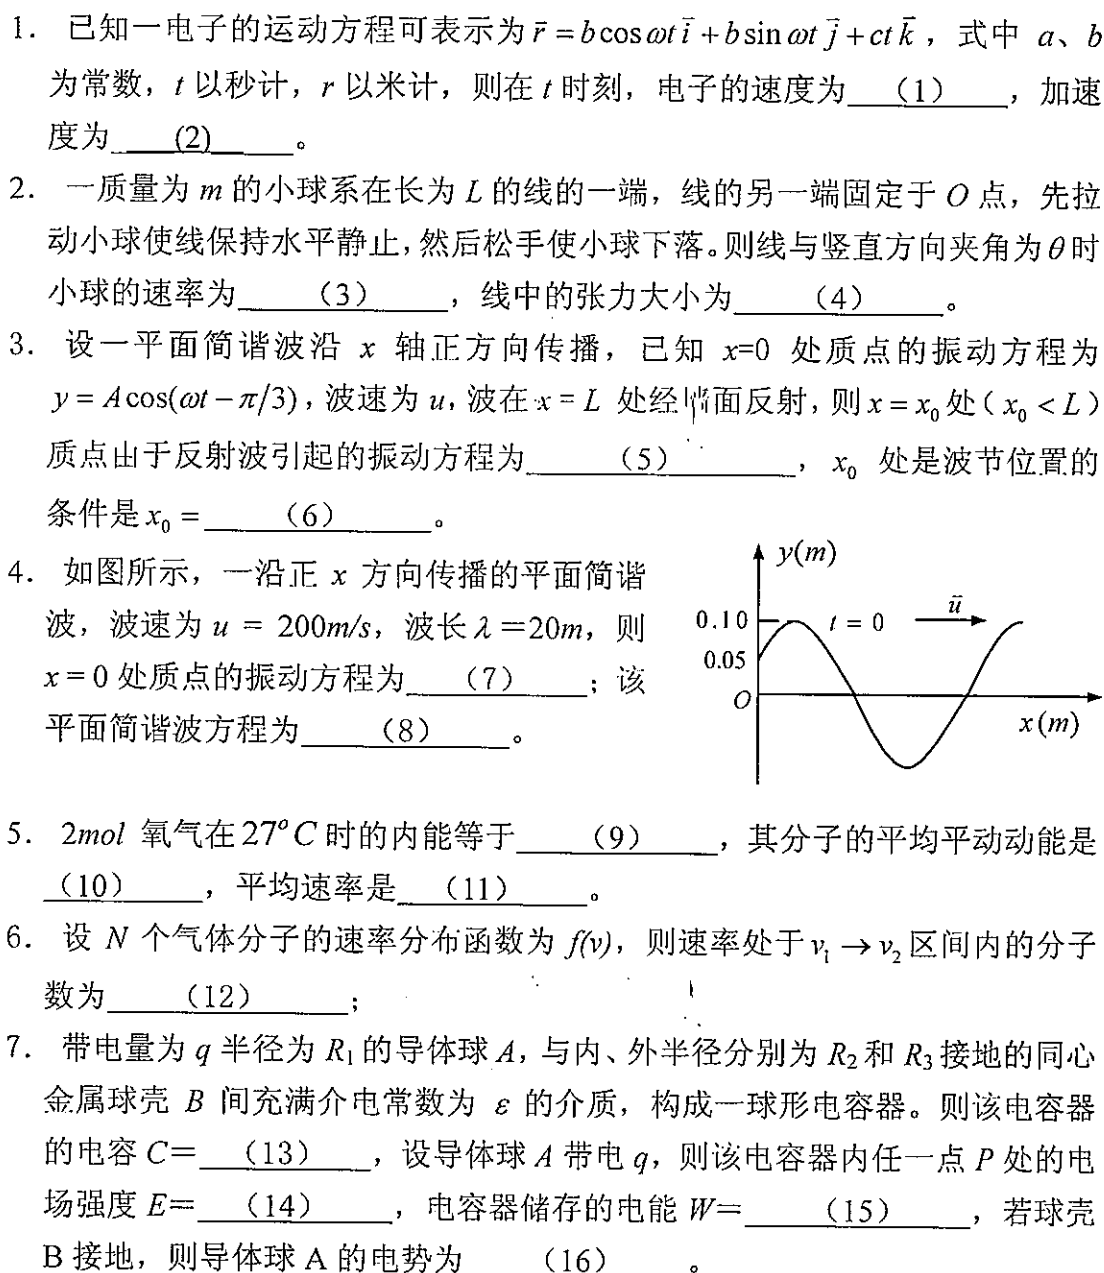 1. 已知一电子的运动方程可表示为 r̄ = b cos ωt ī + b sin ωt j̄ + ct k̄，式中 a、b
为常数，t 以秒计，r 以米计，则在 t 时刻，电子的速度为 （1） ，加速
度为 (2) 。
2. 一质量为 m 的小球系在长为 L 的线的一端，线的另一端固定于 O 点，先拉
动小球使线保持水平静止，然后松手使小球下落。则线与竖直方向夹角为 θ 时
小球的速率为 （3） ，线中的张力大小为 （4） 。
3. 设一平面简谐波沿 x 轴正方向传播，已知 x=0 处质点的振动方程为
y = A cos(ωt − π/3)，波速为 u，波在 x = L 处经 面反射，则 x = x₀ 处（ x₀ < L ）
质点由于反射波引起的振动方程为 （5） ，x₀ 处是波节位置的
条件是 x₀ = （6） 。
4. 如图所示，一沿正 x 方向传播的平面简谐
波，波速为 u = 200m/s，波长 λ =20m，则
x = 0 处质点的振动方程为 （7） ；该
平面简谐波方程为 （8） 。
y(m)
0.10
t = 0
ū
0.05
O
x(m)
5. 2mol 氧气在 27°C 时的内能等于 （9） ，其分子的平均平动动能是
（10） ，平均速率是 （11） 。
6. 设 N 个气体分子的速率分布函数为 f(v)，则速率处于 v₁ → v₂ 区间内的分子
数为 （12） ；
7. 带电量为 q 半径为 R₁ 的导体球 A，与内、外半径分别为 R₂ 和 R₃ 接地的同心
金属球壳 B 间充满介电常数为 ε 的介质，构成一球形电容器。则该电容器
的电容 C＝ （13） ，设导体球 A 带电 q，则该电容器内任一点 P 处的电
场强度 E＝ （14） ，电容器储存的电能 W＝ （15） ，若球壳
B 接地，则导体球 A 的电势为 （16） 。